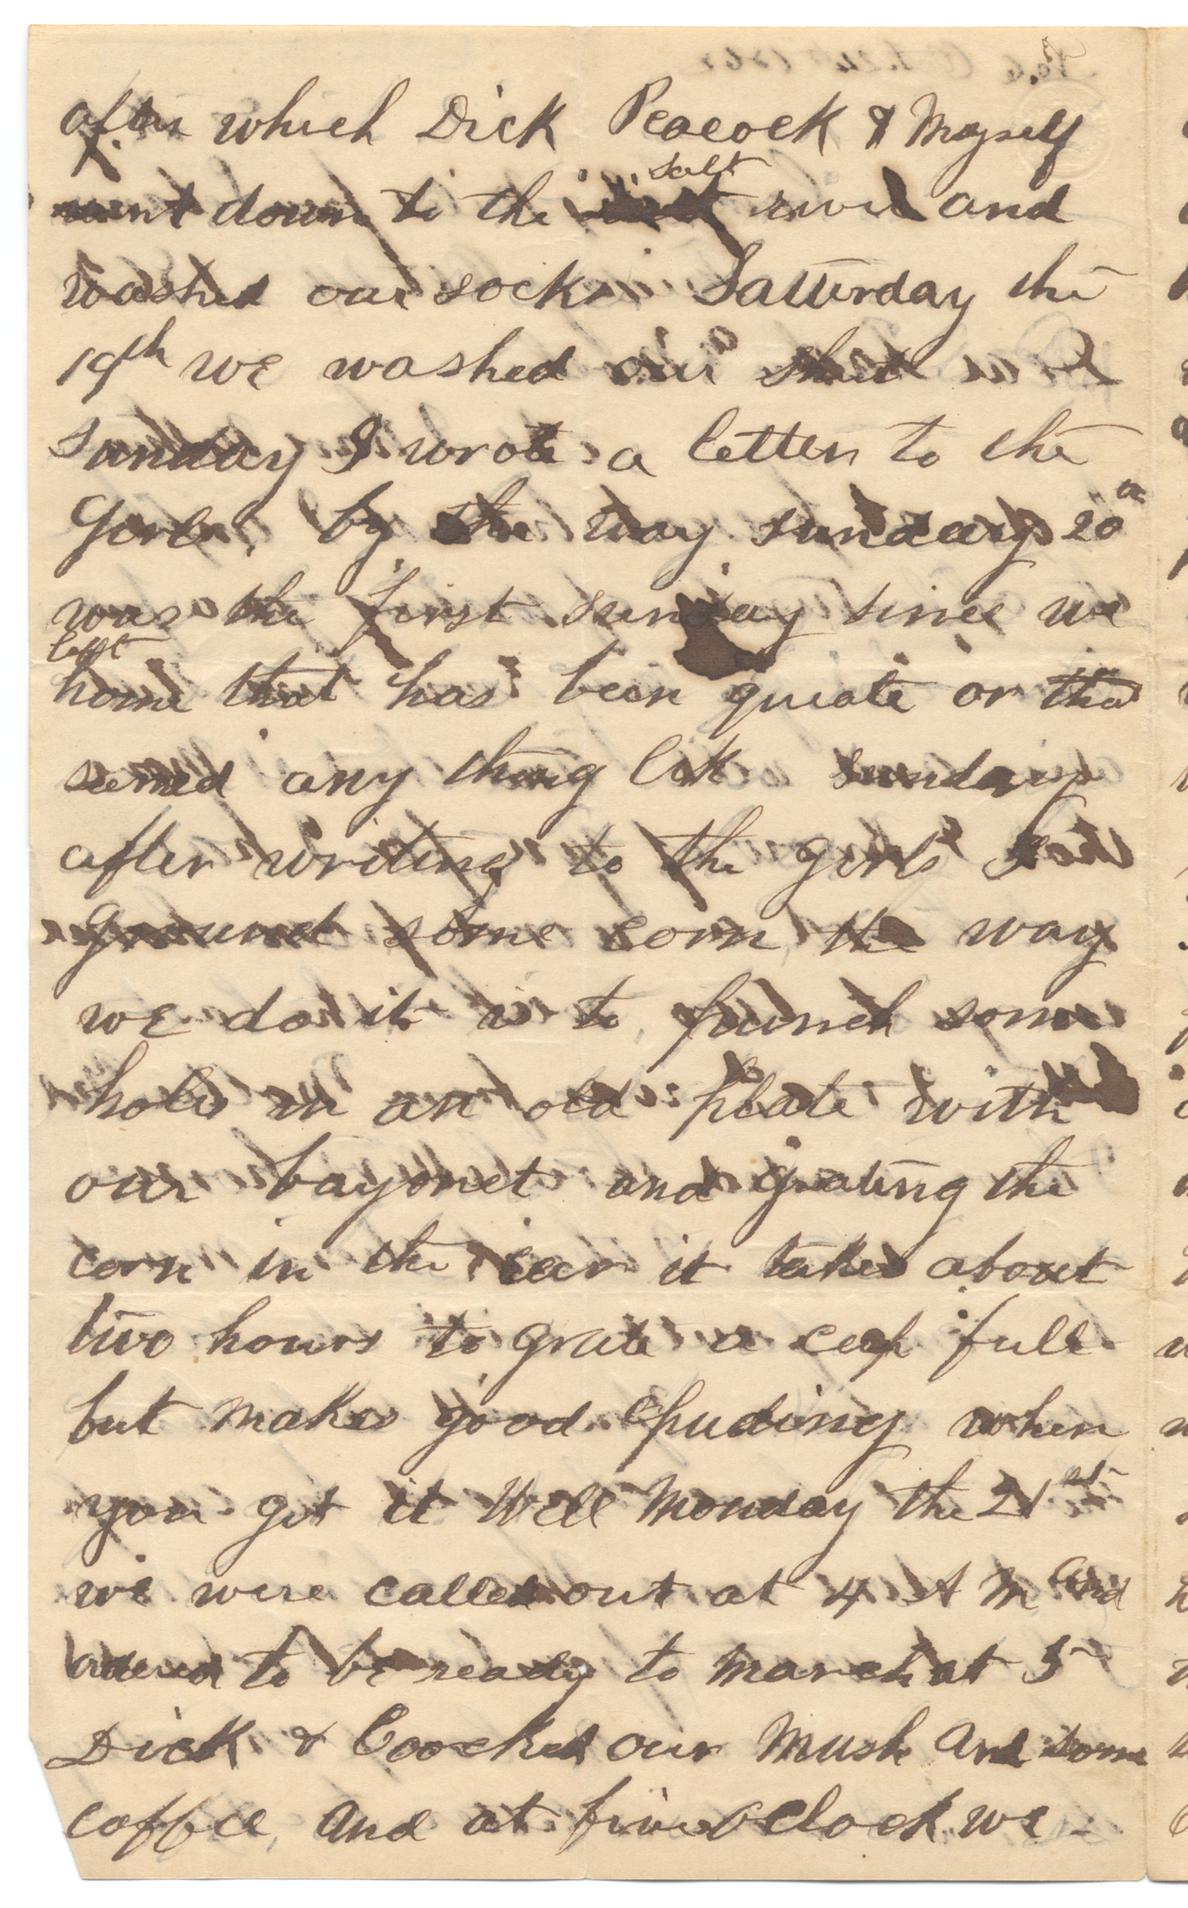 after which Dick Peacock & Myself
went down to the salt river and
washed our socks Satturday the
19th we washed our shirt
sunday I wrote a letter to the
Gorls, by the way sunday 20th
was the first sunday since we
left
home that has been quiate or tha
semed any thing lik sunday
after writing to the girls I
ground some corn, the way
we do it is to punch some
holes in an old plate with
our bayonet and grating the
corn in the ear it takes about
two hours to grate a cup full
but makes good puding when
you get it Well Monday the 21st
we were called out at 4 A M and
ordered to be ready to march at 5
Dick & Coocked our Mush and some
coffee, and at five oClock we